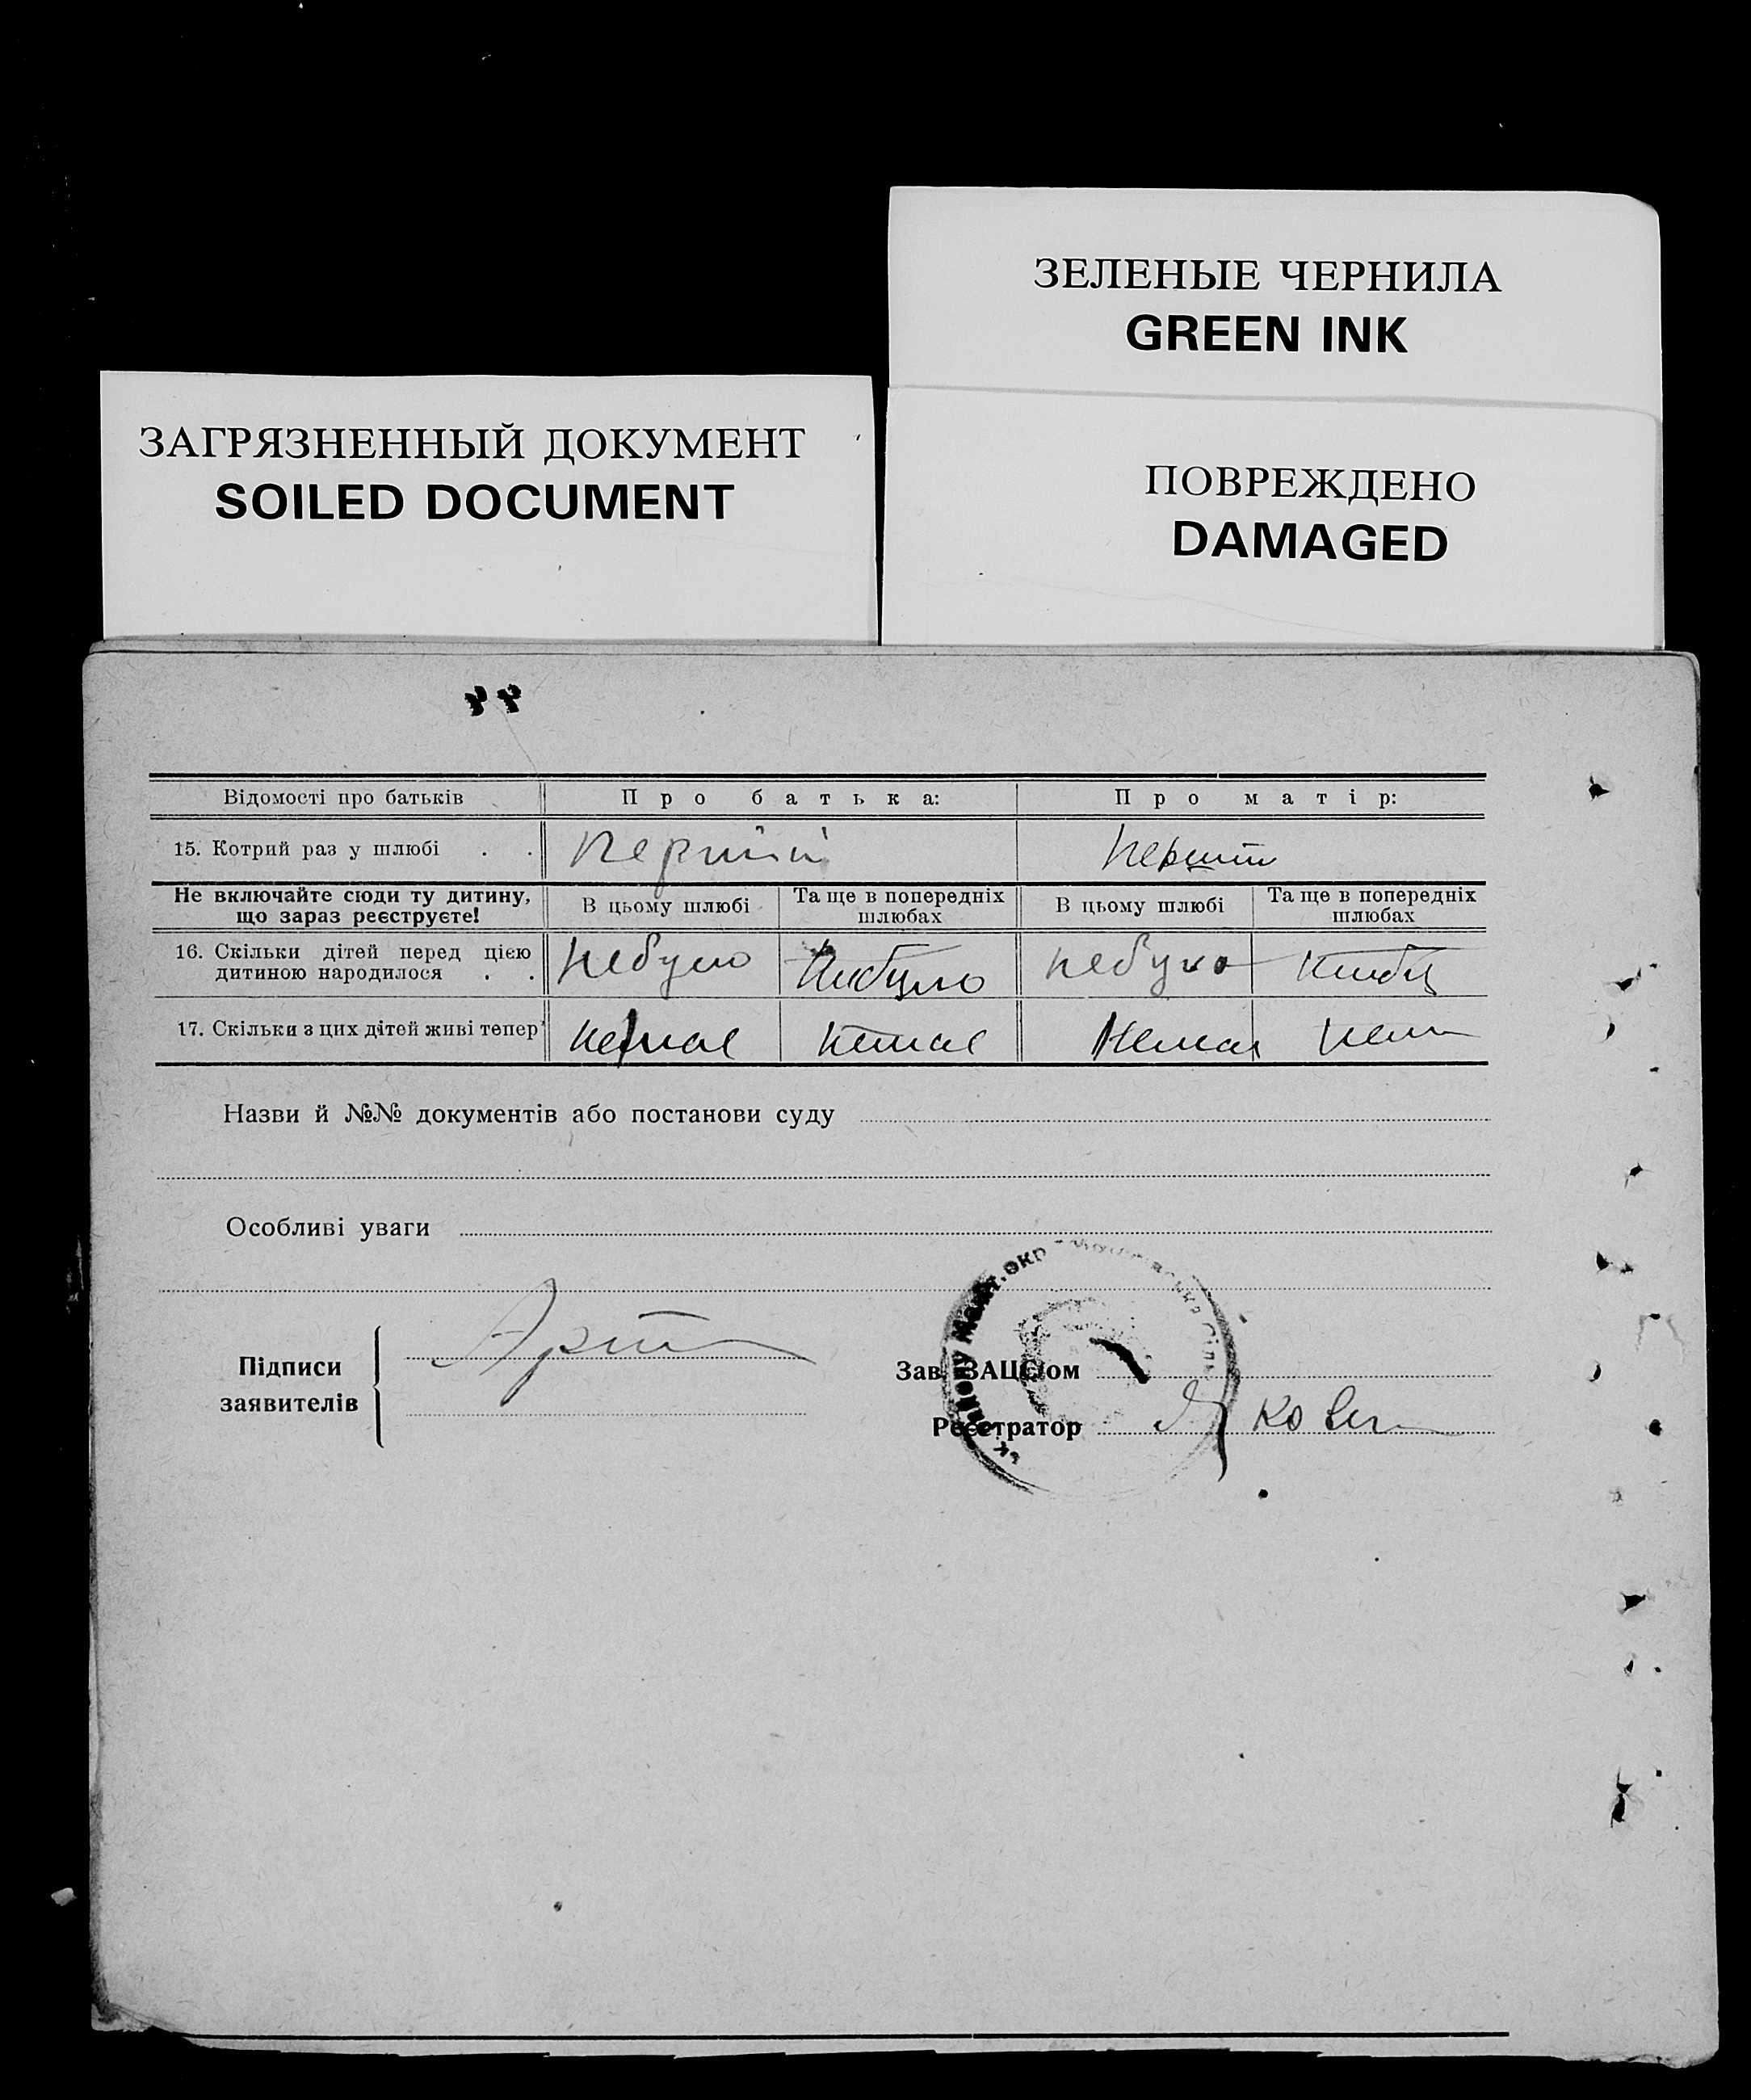 ЗЕЛЕНЫЕ ЧЕРНИЛА
GREEN INK
ЗАГРЯЗНЕННЫЙ ДОКУМЕНТ
SOILED DOCUMENT
ПОВРЕЖДЕНО
DAMAGED
Відомості про батьків Про батька: Про матір:
15. Котрий раз у шлюбі . . перший перший
Не включайте сюди ту дитину, що зараз реєструєте! В цьому шлюбі Та ще в попередніх шлюбах В цьому шлюбі Та ще в попередніх шлюбах
16. Скільки дітей перед цією
дитиною народилося . . небуло небуло небуло
17. Скільки з цих дітей живі тепер немає немає немає
Назви й №№ документів або постанови суду
Особливі уваги
Підписи
заявителів
Зав. ЗАЦСом
Реєстратор